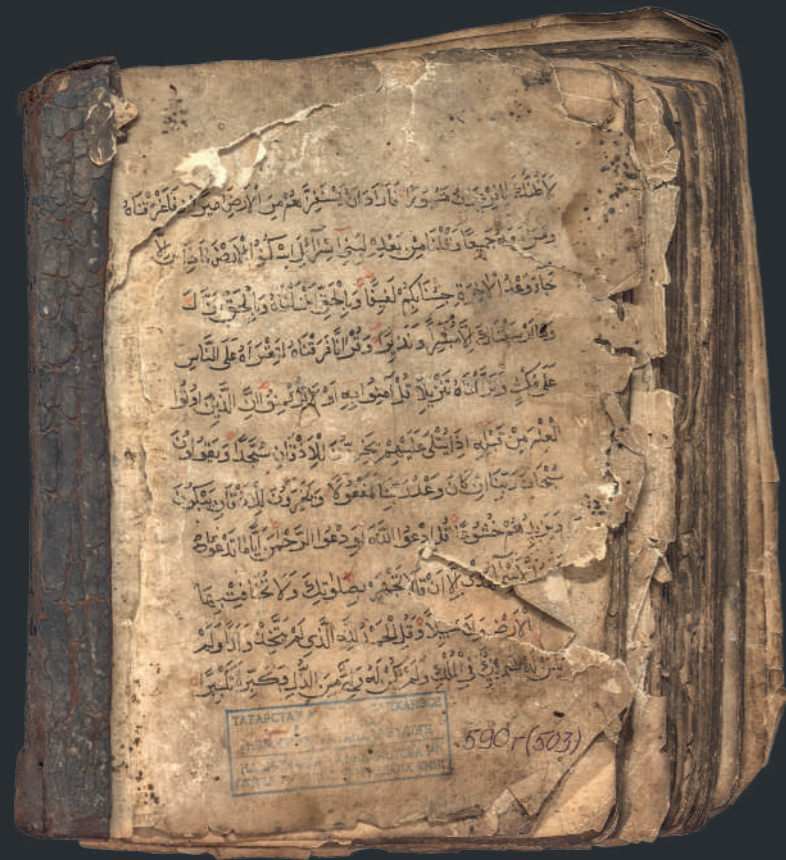 لَأَظُنُّكَ يَا فِرْعَوْنُ مَثْبُورًا فَأَرَادَ اَنْ يَسْتَفِزَّهُمْ مِنَ الْاَرْضِ فَاَغْرَقْنَاهُ
وَمَنْ مَعَهُ جَمِيعًا وَقُلْنَا مِنْ بَعْدِهِ لِبَنِي اِسْرَائِلَ اسْكُنُوا الْاَرْضَ فَاِذَا
جَاءَ وَعْدُ الْاٰخِرَةِ جِئْنَا بِكُمْ لَفِيفًا وَبِالْحَقِّ اَنْزَلْنَاهُ وَبِالْحَقِّ نَزَلَ
وَمَا اَرْسَلْنَاكَ اِلَّا مُبَشِّرًا وَنَذِيرًا وَقُرْاٰنًا فَرَقْنَاهُ لِتَقْرَاَهُ عَلَى النَّاسِ
عَلَى مُكْثٍ وَنَزَّلْنَاهُ تَنْزِيلًا قُلْ اٰمِنُوا بِهِ اَوْ لَا تُؤْمِنُوا اِنَّ الَّذِينَ اُوتُوا
الْعِلْمَ مِنْ قَبْلِهِ اِذَا يُتْلَى عَلَيْهِمْ يَخِرُّونَ لِلْاَذْقَانِ سُجَّدًا وَيَقُولُونَ
سُبْحَانَ رَبِّنَا اِنْ كَانَ وَعْدُ رَبِّنَا لَمَفْعُولًا وَيَخِرُّونَ لِلْاَذْقَانِ يَبْكُونَ
وَيَزِيدُهُمْ خُشُوعًا قُلِ ادْعُوا اللّٰهَ اَوِ ادْعُوا الرَّحْمٰنَ اَيًّامَا تَدْعُوا
الْاَسْمَاءُ الْحُسْنَى وَلَا تَجْهَرْ بِصَلَوتِكَ وَلَا تُخَافِتْ بِهَا
سَبِيلًا وَقُلِ الْحَمْدُ لِلّٰهِ الَّذِي لَمْ يَتَّخِذْ وَلَدًا وَلَمْ
يَكُنْ لَهُ شَرِيكٌ فِي الْمُلْكِ وَلَمْ يَكُنْ لَهُ وَلِيٌّ مِنَ الذُّلِّ وَكَبِّرْهُ تَكْبِيرًا
590г(503)